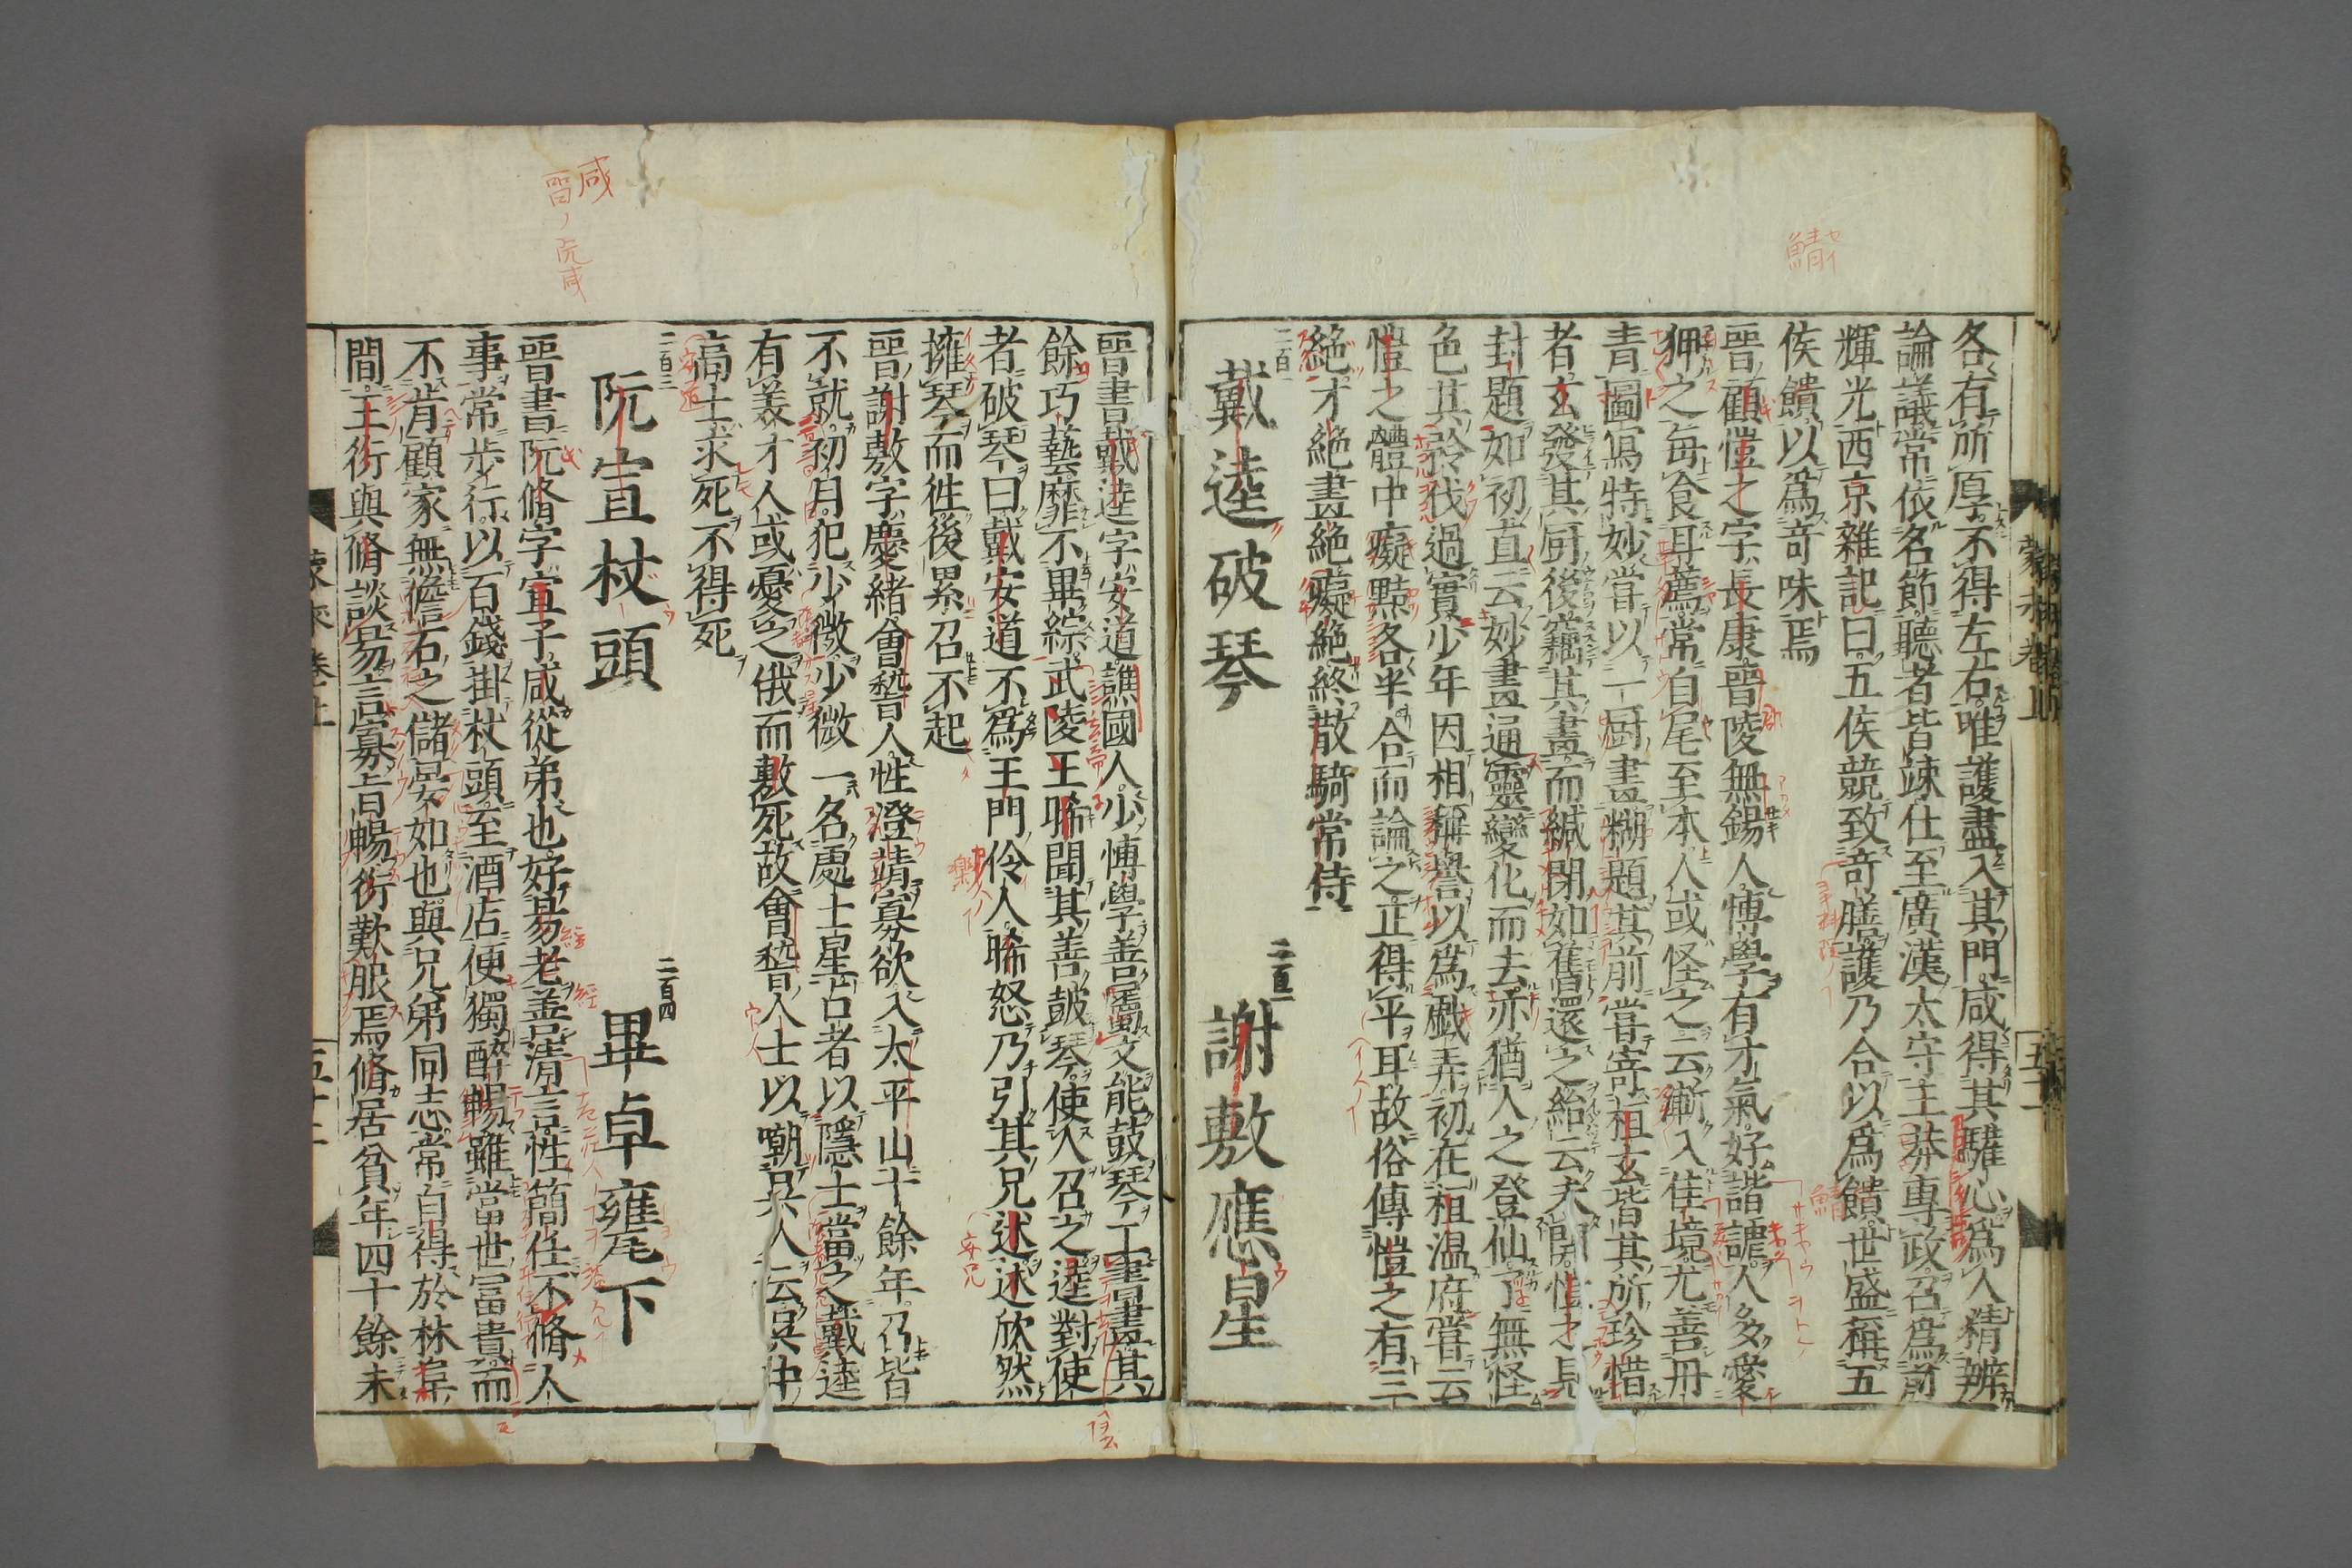 各有所厚不得左右唯護盡入其門咸得其驩心爲人精辨
論議常依名節聽者皆竦仕至廣漢太守王莽專政召爲前
輝光西京雜記曰五侯競致奇膳護乃合以爲饋世盛稱五
侯饋以爲奇味焉
晉顧愷之字長康晉陵無錫人博學有才氣好諧謔人多愛
狎之每食耳蔗常自尾至本人或怪之云漸入佳境尤善丹
青圖寫特妙嘗以一厨畫糊題其前嘗寄桓玄皆其所珍惜
者玄發其厨後竊其畫而緘閉如舊還之紿云未開愷之見
封題如初直云妙畫通靈變化而去亦猶人之登仙了無怪
色其矜伐過實少年因相稱譽以爲戲弄初在桓温府嘗云
愷之體中癡黠各半合而論之正得平耳故俗傳愷之有三
絶才絶畫絶癡絶終散騎常侍
二百一
戴逵破琴
二百二
謝敷應星
晉書戴逵字安道譙國人少博學善屬文能鼓琴工書畫其
餘巧藝靡不畢綜武陵王晞聞其善鼓琴使人召之逵對使
者破琴曰戴安道不爲王門伶人晞怒乃引其兄述述欣然
擁琴而徃後累召不起
晉謝敷字慶緒會稽人性澄靖寡欲入太平山十餘年召皆
不就初月犯少微少微一名處士星占者以隱士當之戴逵
有美才人或憂之俄而敷死故會稽人士以嘲呉人云呉中
高士求死不得死
二百三
阮宣杖頭
二百四
畢卓甕下
晉書阮脩字宣子咸從弟也好易老善清言性簡任不脩人
事常歩行以百錢掛杖頭至酒店便獨酣暢雖當世富貴而
不肯顧家無儋石之儲晏如也與兄弟同志常自得於林皐
間王衍與脩談易言寡旨暢衍歎服焉脩居貧年四十餘未
鯖
セイ
咸
晋ノ阮咸